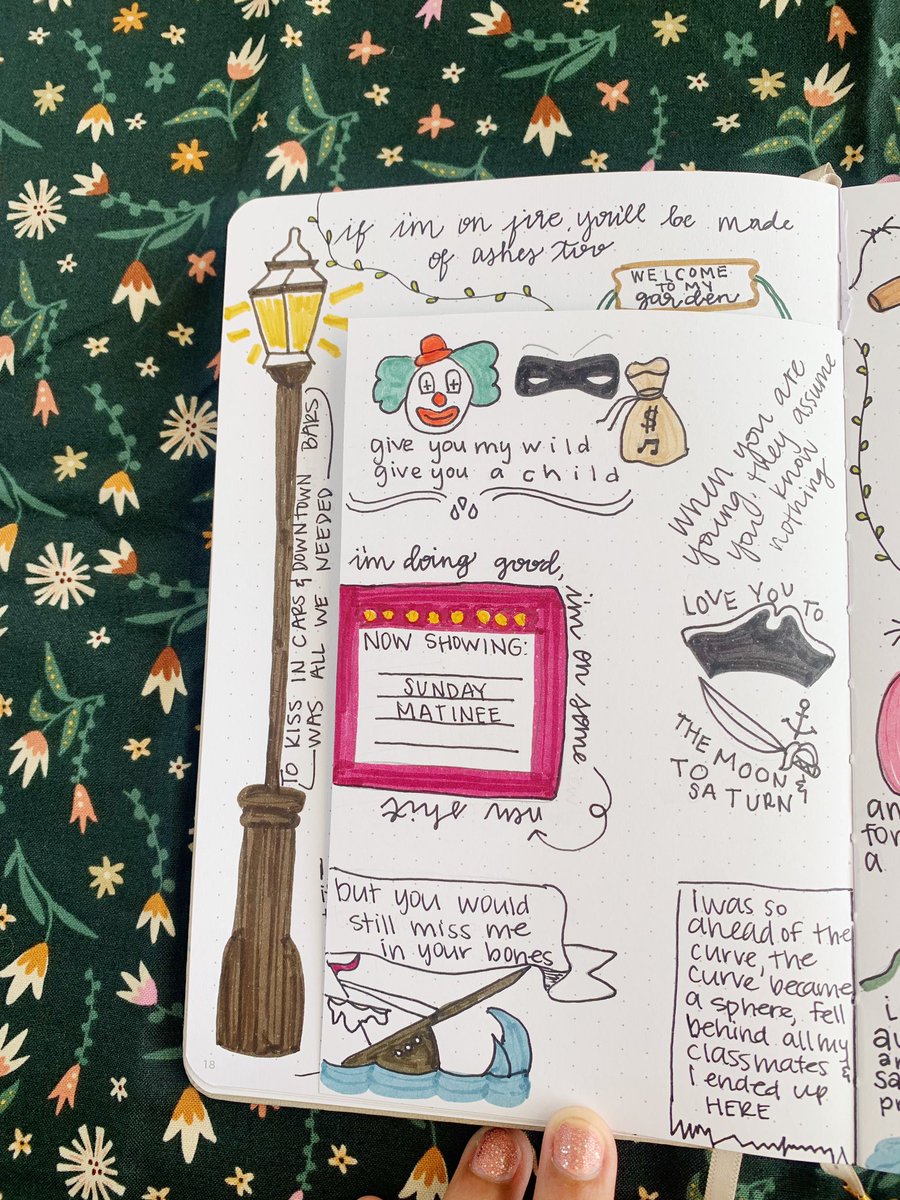 if i'm on fire, you'll be made
of ashes too
WELCOME
TO MY
garden
TO KISS IN CARS & DOWNTOWN BARS
WAS ALL WE NEEDED
give you my wild
give you a child
$
when you are
young, they assume
you know
nothing
i'm doing good,
i'm on some
new shit
NOW SHOWING:
SUNDAY
MATINEE
LOVE YOU TO
THE MOON &
TO SATURN
but you would
still miss me
in your bones
I was so
ahead of the
curve, the
curve became
a sphere, fell
behind all my
classmates &
I ended up
HERE
18
an
for
a
i
au
an
sa
pr